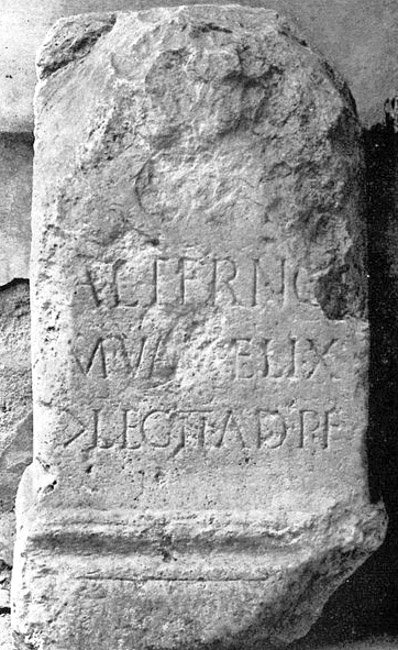 AETERNO
M VAL FELIX
> LEG II AD P F